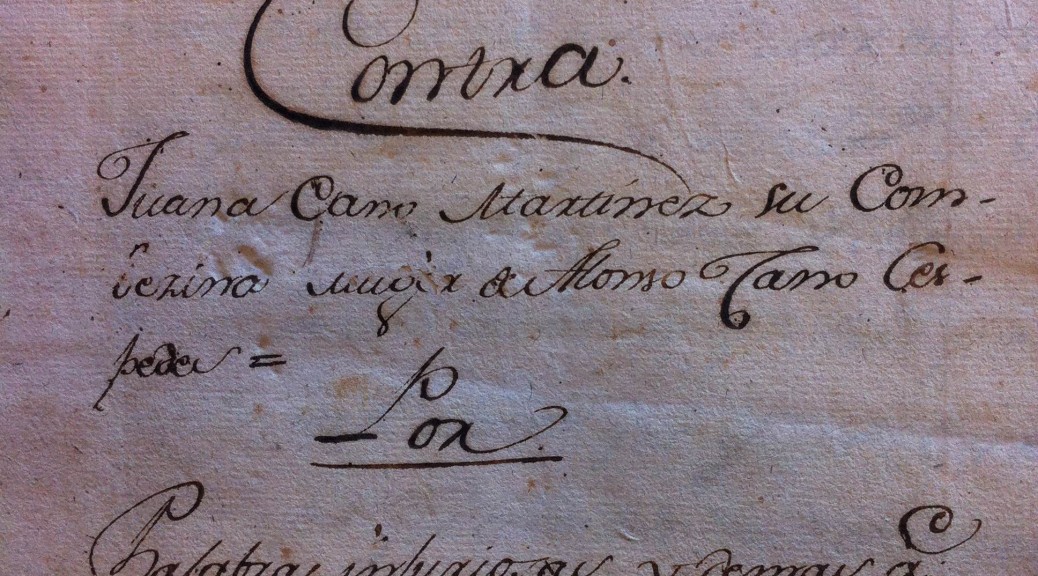 Contra.
Juana Cano Martinez su Com-
bezina muger de Alonso Cano Ces-
pedes =
Por
Palabras injuriosas y demas q̃